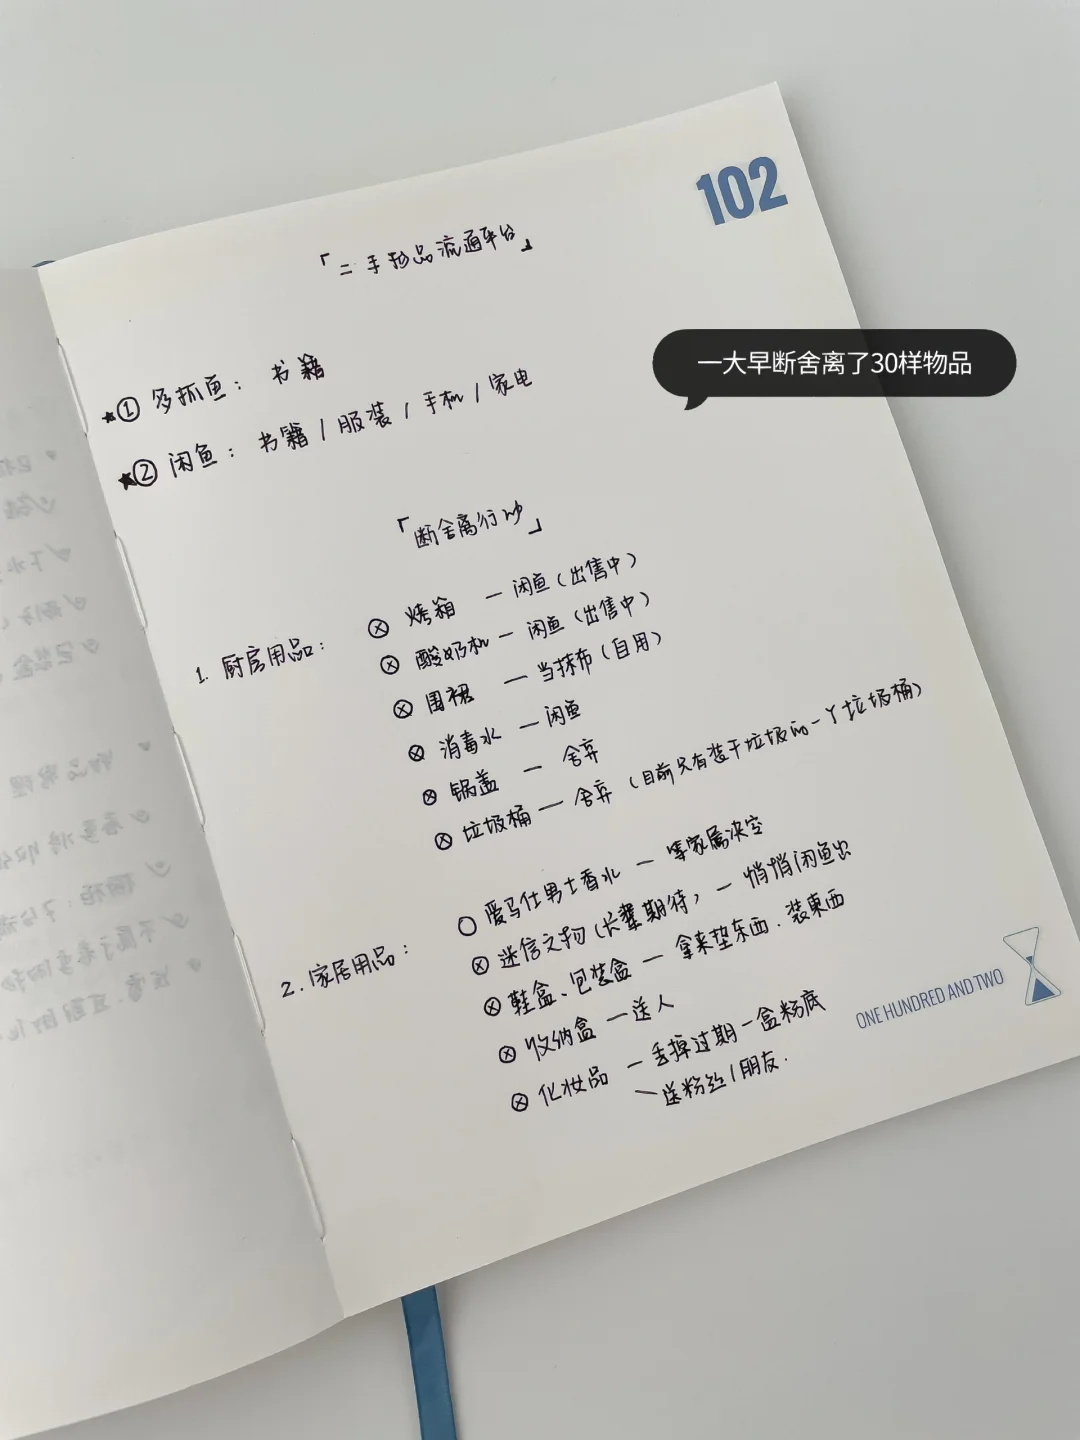 102
「二手物品流通平台」
一大早断舍离了30样物品
★① 多抓鱼：书籍
★② 闲鱼：书籍/服装/手机/家电
「断舍离行动」
1. 厨房用品：
ⓧ 烤箱 — 闲鱼（出售中）
ⓧ 酸奶机 — 闲鱼（出售中）
ⓧ 围裙 — 当抹布（自用）
ⓧ 消毒水 — 闲鱼
ⓧ 锅盖 — 舍弃
ⓧ 垃圾桶 — 舍弃（目前只有装干垃圾的一个垃圾桶）
2. 家居用品：
○ 爱马仕男士香水 — 等家属决定
ⓧ 迷信文物（长辈期待） — 悄悄闲鱼出
ⓧ 鞋盒、包装盒 — 拿来垫东西、装東西
ⓧ 收纳盒 — 送人
ⓧ 化妆品 — 丢掉过期一盒粉底
— 送粉丝/朋友.
ONE HUNDRED AND TWO